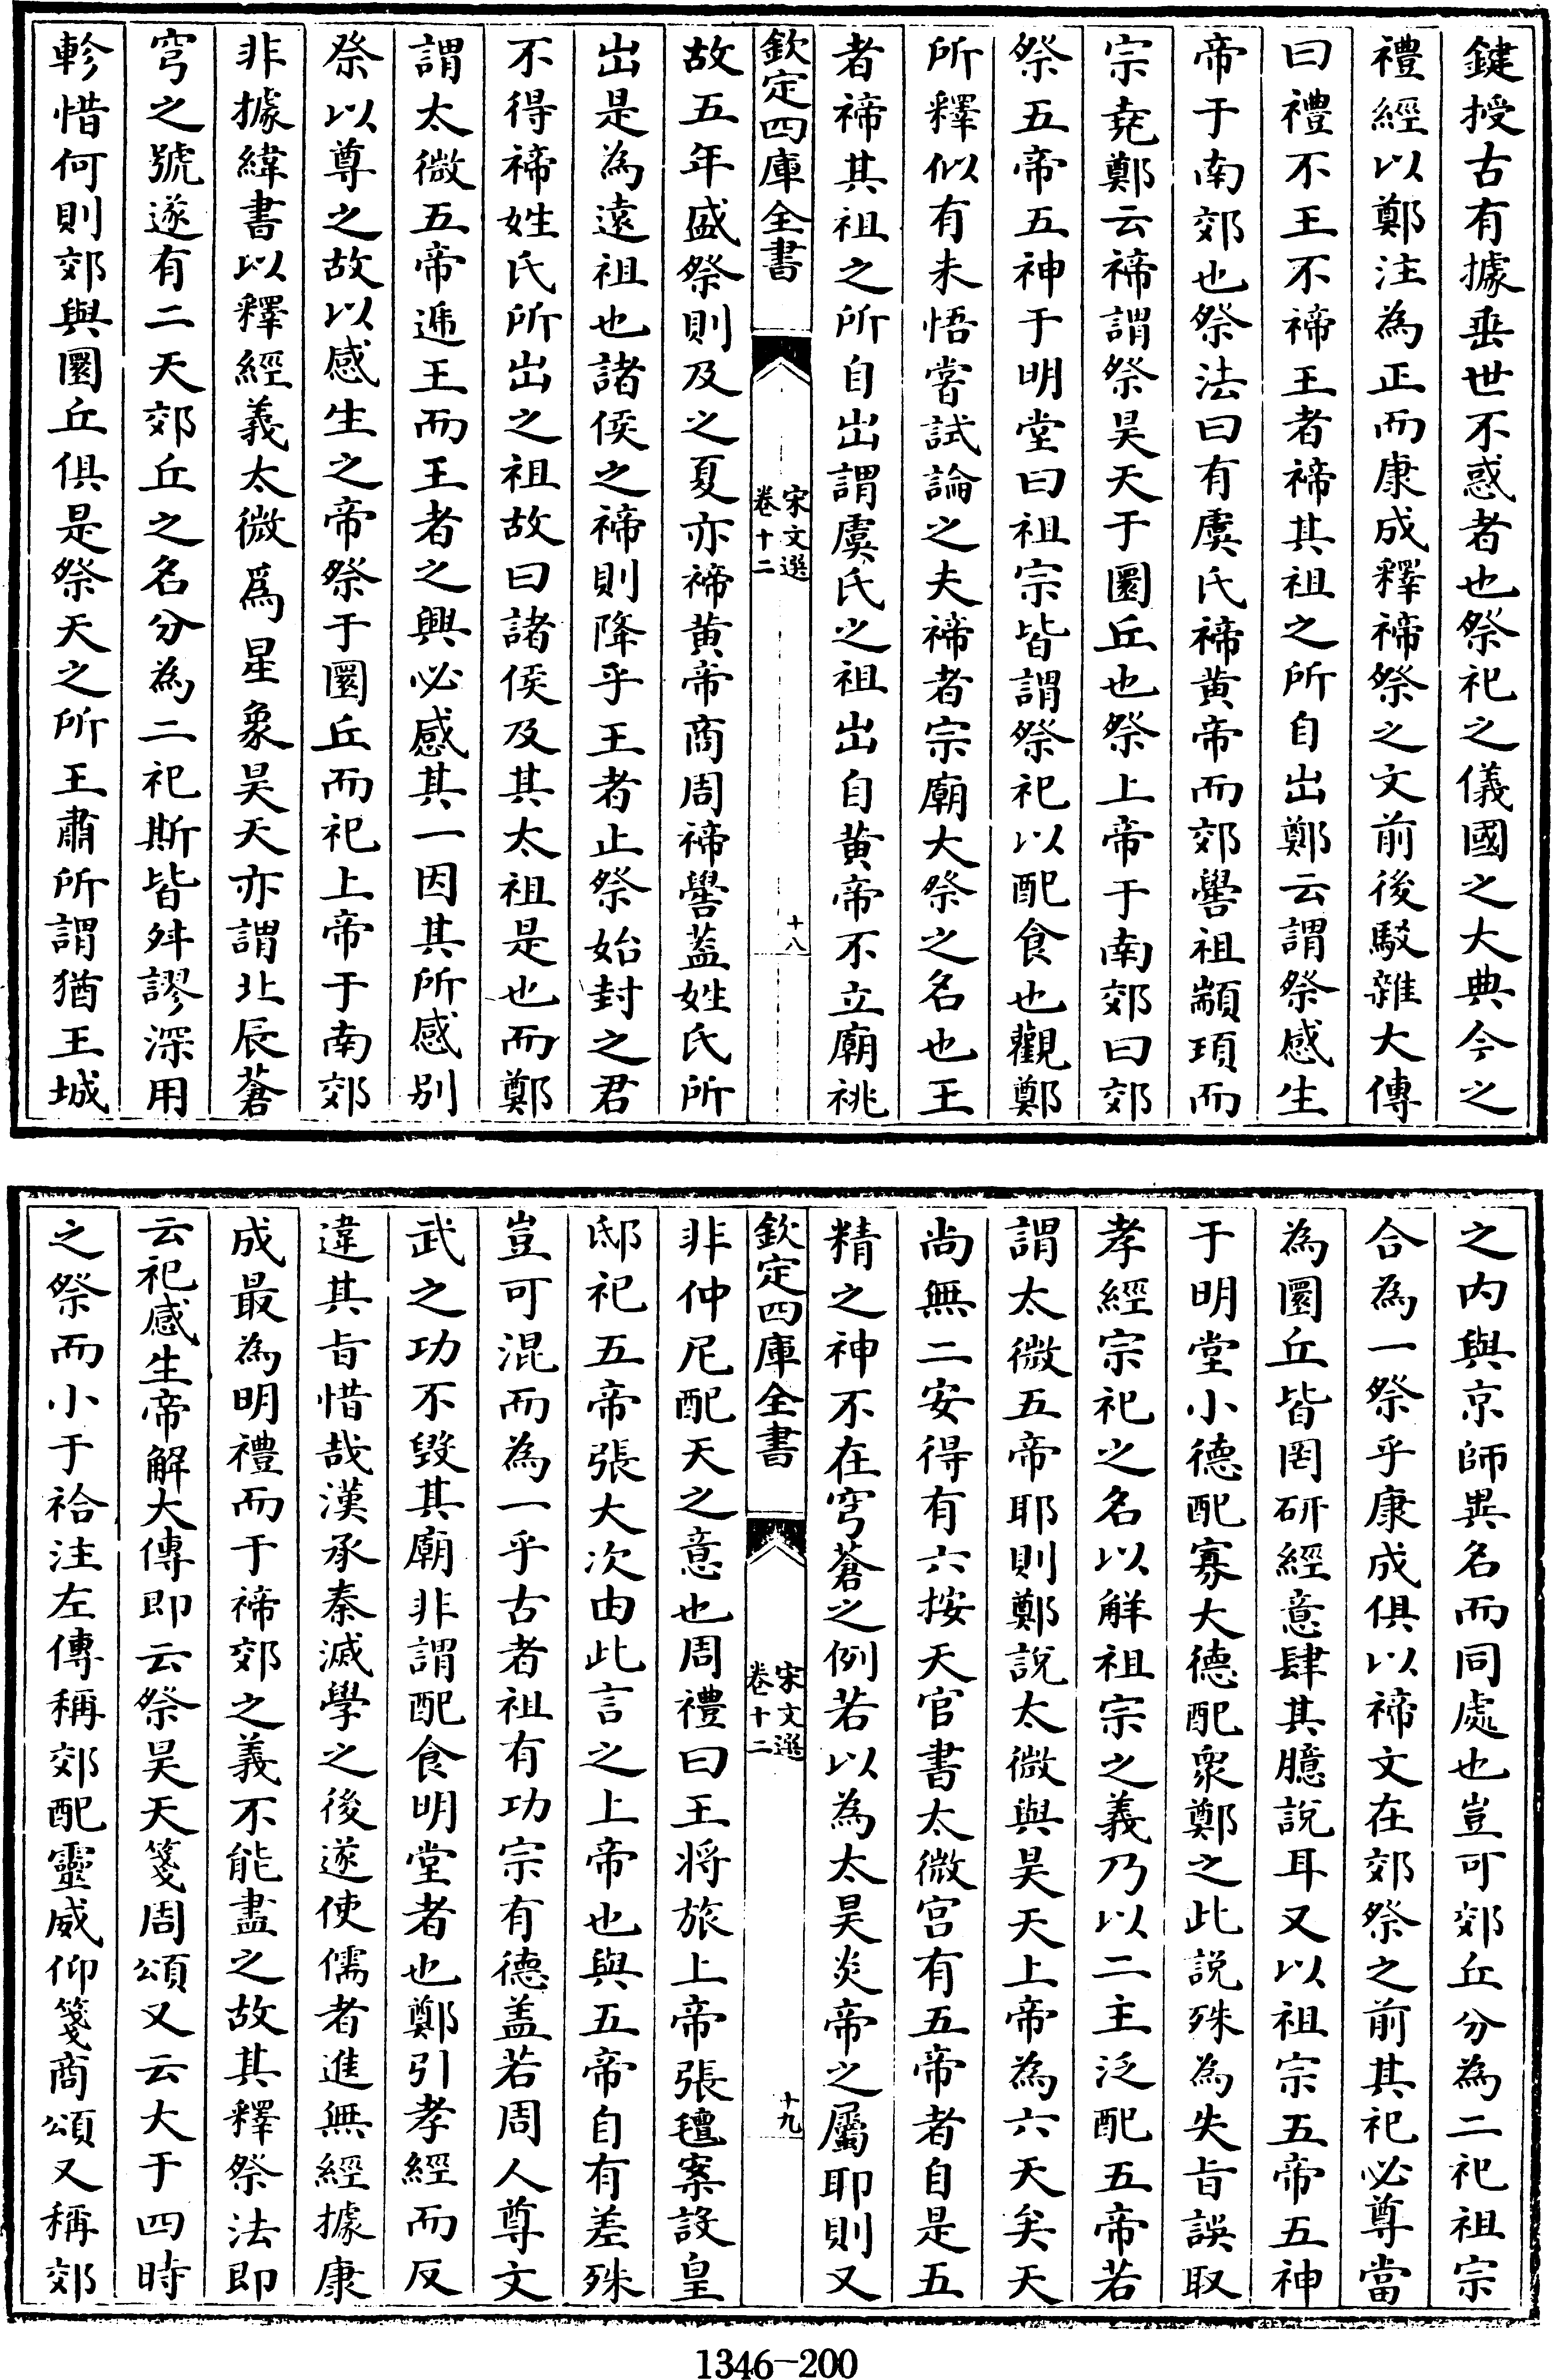 鍵授古有據垂世不惑者也祭祀之儀國之大典今之
禮經以鄭注為正而康成釋禘祭之文前後駁雜大傳
曰禮不王不禘王者禘其祖之所自出鄭云謂祭感生
帝于南郊也祭法曰有虞氏禘黄帝而郊嚳祖顓頊而
宗堯鄭云禘謂祭昊天于圜丘也祭上帝于南郊曰郊
祭五帝五神于明堂曰祖宗皆謂祭祀以配食也觀鄭
所釋似有未悟嘗試論之夫禘者宗廟大祭之名也王
者禘其祖之所自出謂虞氏之祖出自黄帝不立廟祧
欽定四庫全書
宋文選
卷十二
十八
故五年盛祭則及之夏亦禘黄帝商周禘嚳蓋姓氏所
出是為遠祖也諸侯之禘則降乎王者止祭始封之君
不得禘姓氏所出之祖故曰諸侯及其太祖是也而鄭
謂太微五帝遞王而王者之興必感其一因其所感别
祭以尊之故以感生之帝祭于圜丘而祀上帝于南郊
非據緯書以釋經義太微爲星象昊天亦謂北辰蒼
穹之號遂有二天郊丘之名分為二祀斯皆舛謬深用
軫惜何則郊與圜丘俱是祭天之所王肅所謂猶王城
之内與京師異名而同處也豈可郊丘分為二祀祖宗
合為一祭乎康成俱以禘文在郊祭之前其祀必尊當
為圜丘皆罔研經意肆其臆說耳又以祖宗五帝五神
于明堂小德配寡大德配衆鄭之此説殊為失旨誤取
孝經宗祀之名以解祖宗之義乃以二主泛配五帝若
謂太微五帝耶則鄭説太微與昊天上帝為六天矣天
尚無二安得有六按天官書太微宫有五帝者自是五
精之神不在穹蒼之例若以為太昊炎帝之屬耶則又
欽定四庫全書
宋文選
卷十二
十九
非仲尼配天之意也周禮曰王将旅上帝張氊案設皇
邸祀五帝張大次由此言之上帝也與五帝自有差殊
豈可混而為一乎古者祖有功宗有德盖若周人尊文
武之功不毁其廟非謂配食明堂者也鄭引孝經而反
違其旨惜哉漢承秦滅學之後遂使儒者進無經據康
成最為明禮而于禘郊之義不能盡之故其釋祭法即
云祀感生帝解大傳即云祭昊天箋周頌又云大于四時
之祭而小于祫注左傳稱郊配靈威仰箋商頌又稱郊
1346-200